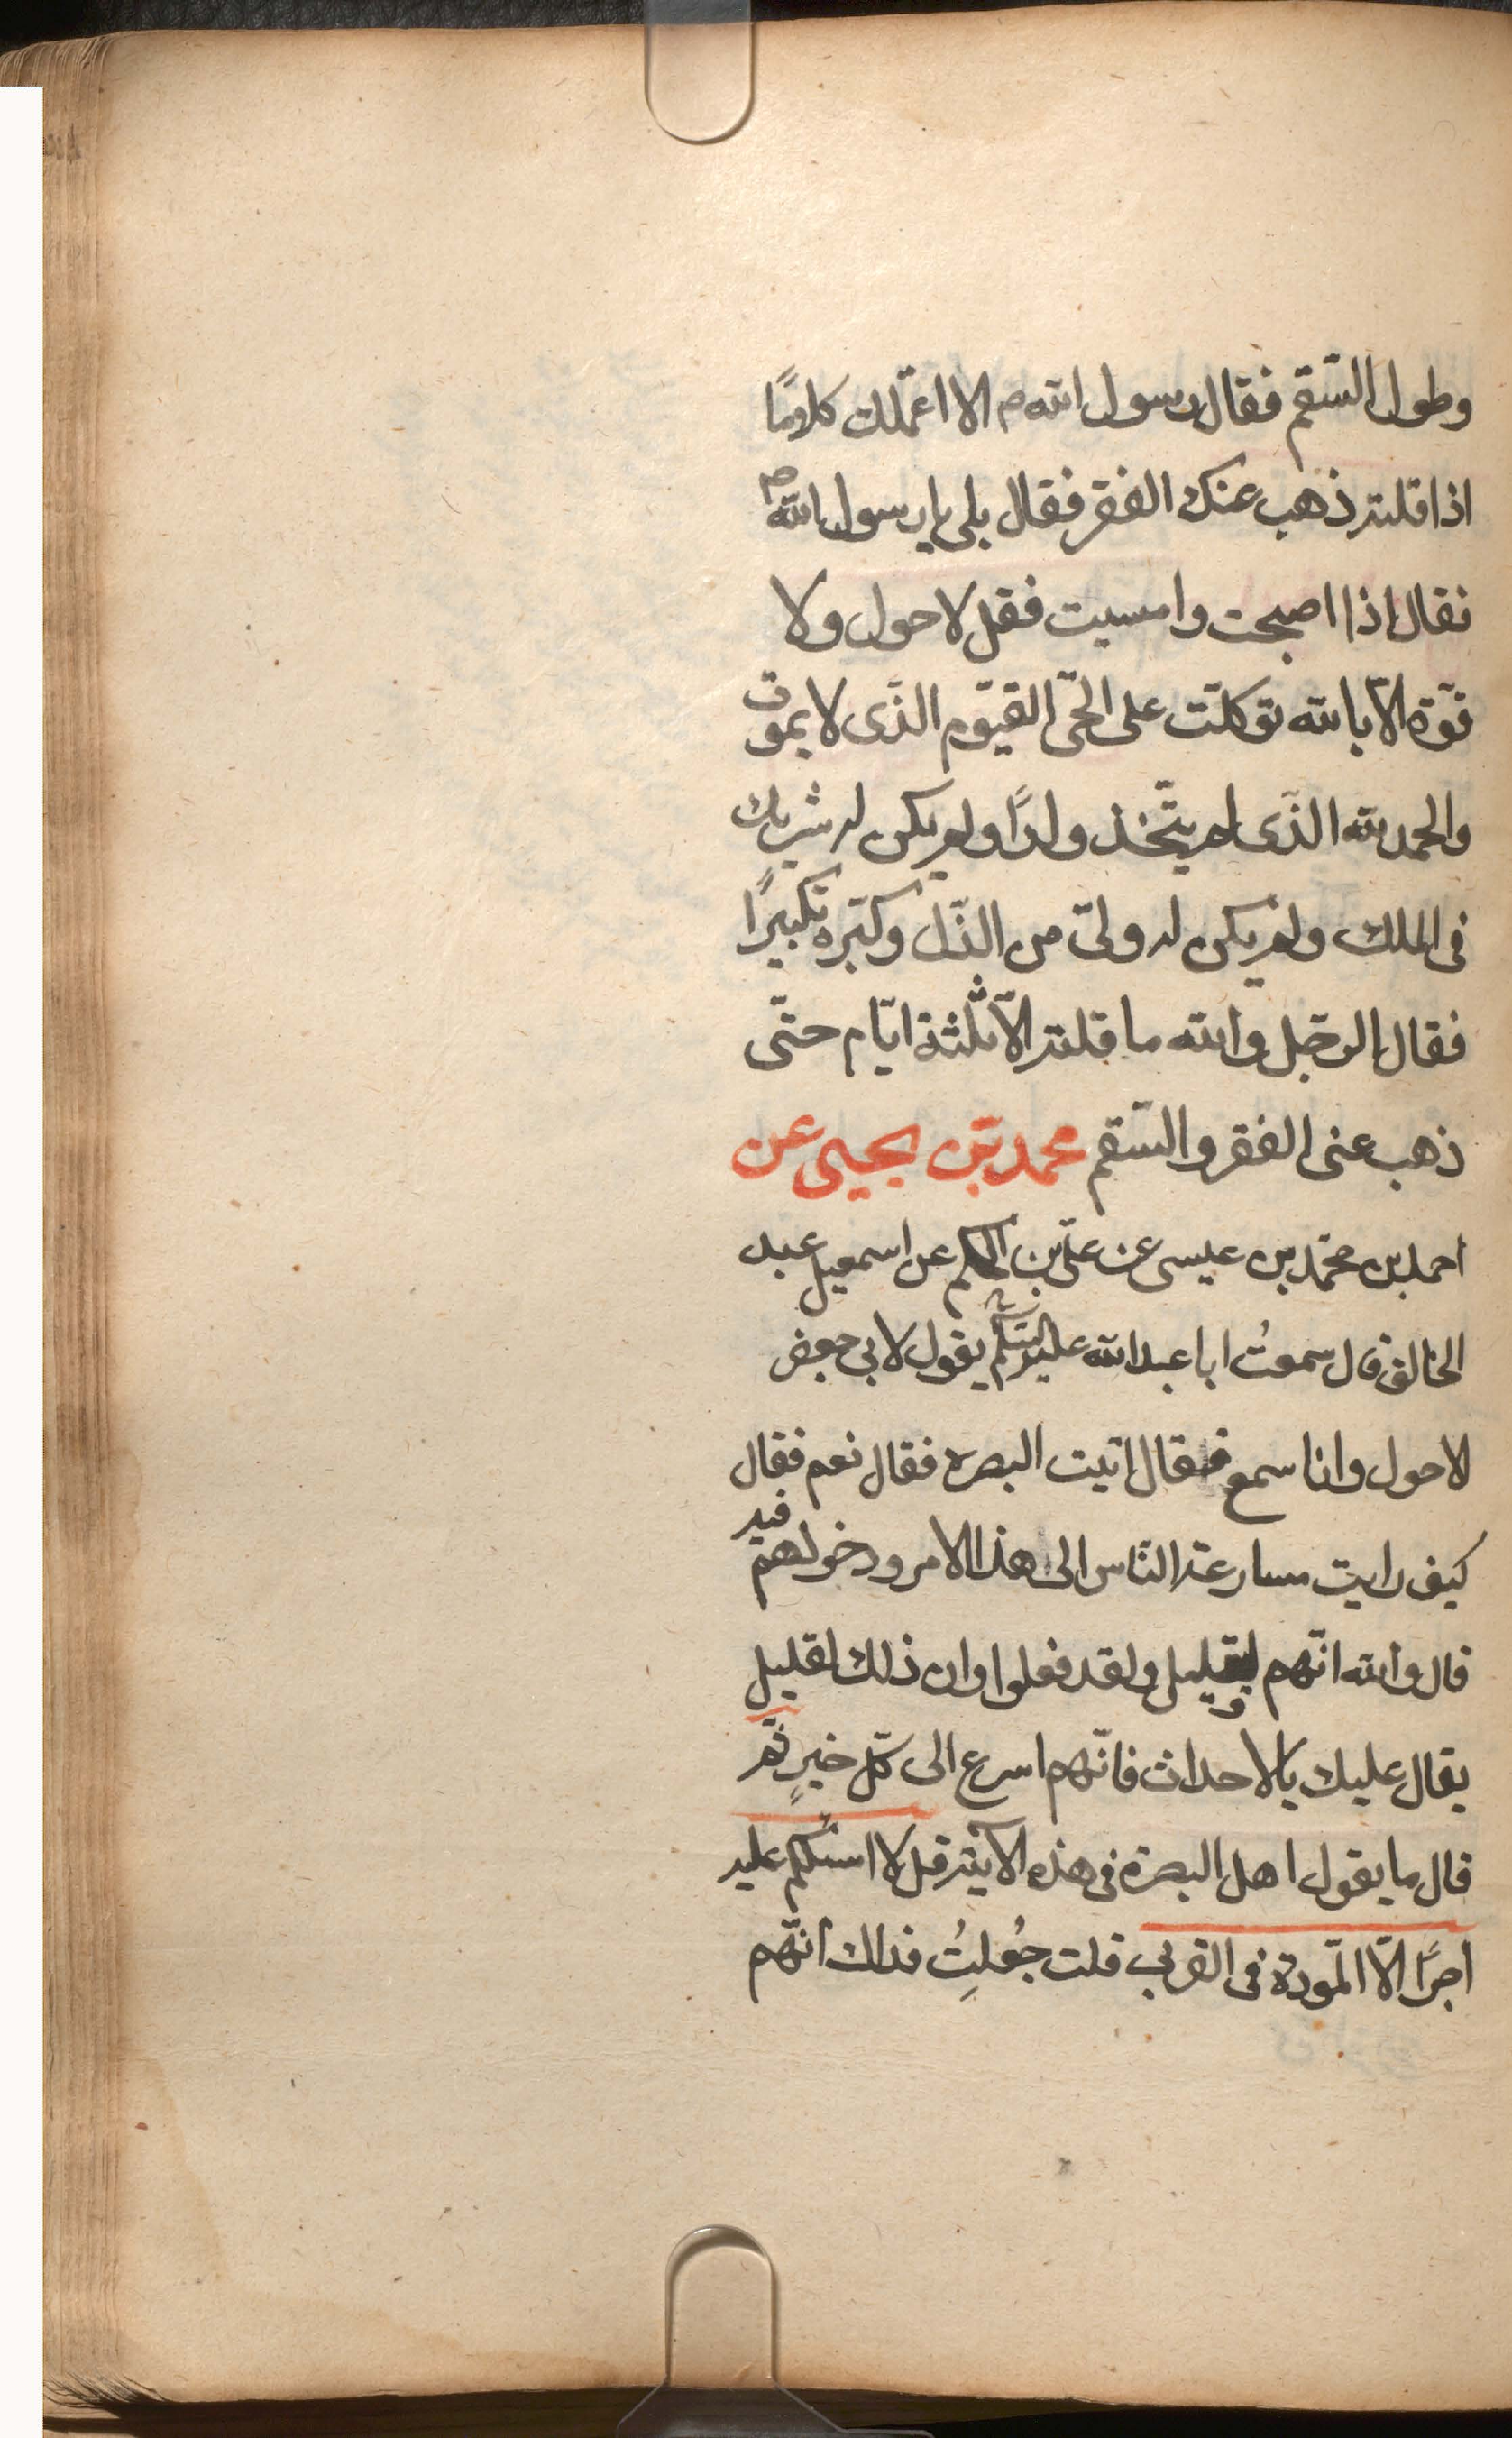 وطول السّقم فقال رسول الله ص الا اعمّلك كلامًا
اذا قلته ذهب عنك الفقر فقال بلى يا رسول الله ص
فقال اذا اصبحت وامسيت فقل لا حول ولا
قوّة الّا بالله توكلّت على الحّى القيّوم الذّى لا يموت
والحمد لله الذّى لم يتّخذ ولدًا ولم يكن له شريك
فى الملك ولم يكن له ولىّ من الذّل وكبّره تكبيرًا
فقال الرجّل والله ما قلته الّا ثلثة ايّام حتّى
ذهب عنى الفقر والسّقم محمد بّن يحيى عن
احمد بن محمّد بن عيسى عن علىّ بن الحكم عن اسمعيل عبد
الخالق قال سمعتُ ابا عبد الله عليه السّلم يقول لابى جعفر
الاحول وانا سمع فقال اتيت البصره فقال نعم فقال
كيف رايت مسارعة النّاس الى هذا الامر ودخولهم فيه
قال والله انّهم لقليل ولقد فعلوا وان ذلك لقليل
يقال عليك بالاحداث فانّهم اسرع الى كلّ خيرٍ ثّم
قال ما يقول اهل البصرة فى هذه الآية قل لا اسئلكم عليه
اجرًا الّا المّودة فى القربى قلت جُعلِتُ فداك انّهم